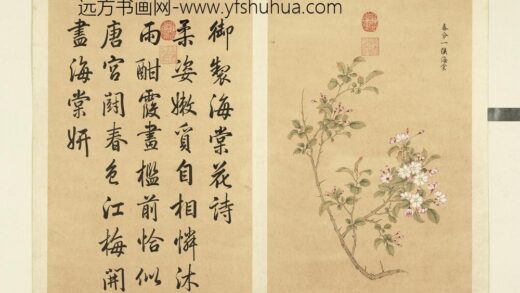 远方书画网-www.yfshuhua.com
春分一候海棠
御製海棠花詩
柔姿嫩質自相憐沐
雨酣霞畫檻前恰似
唐宮闘春色江梅開
盡海棠妍